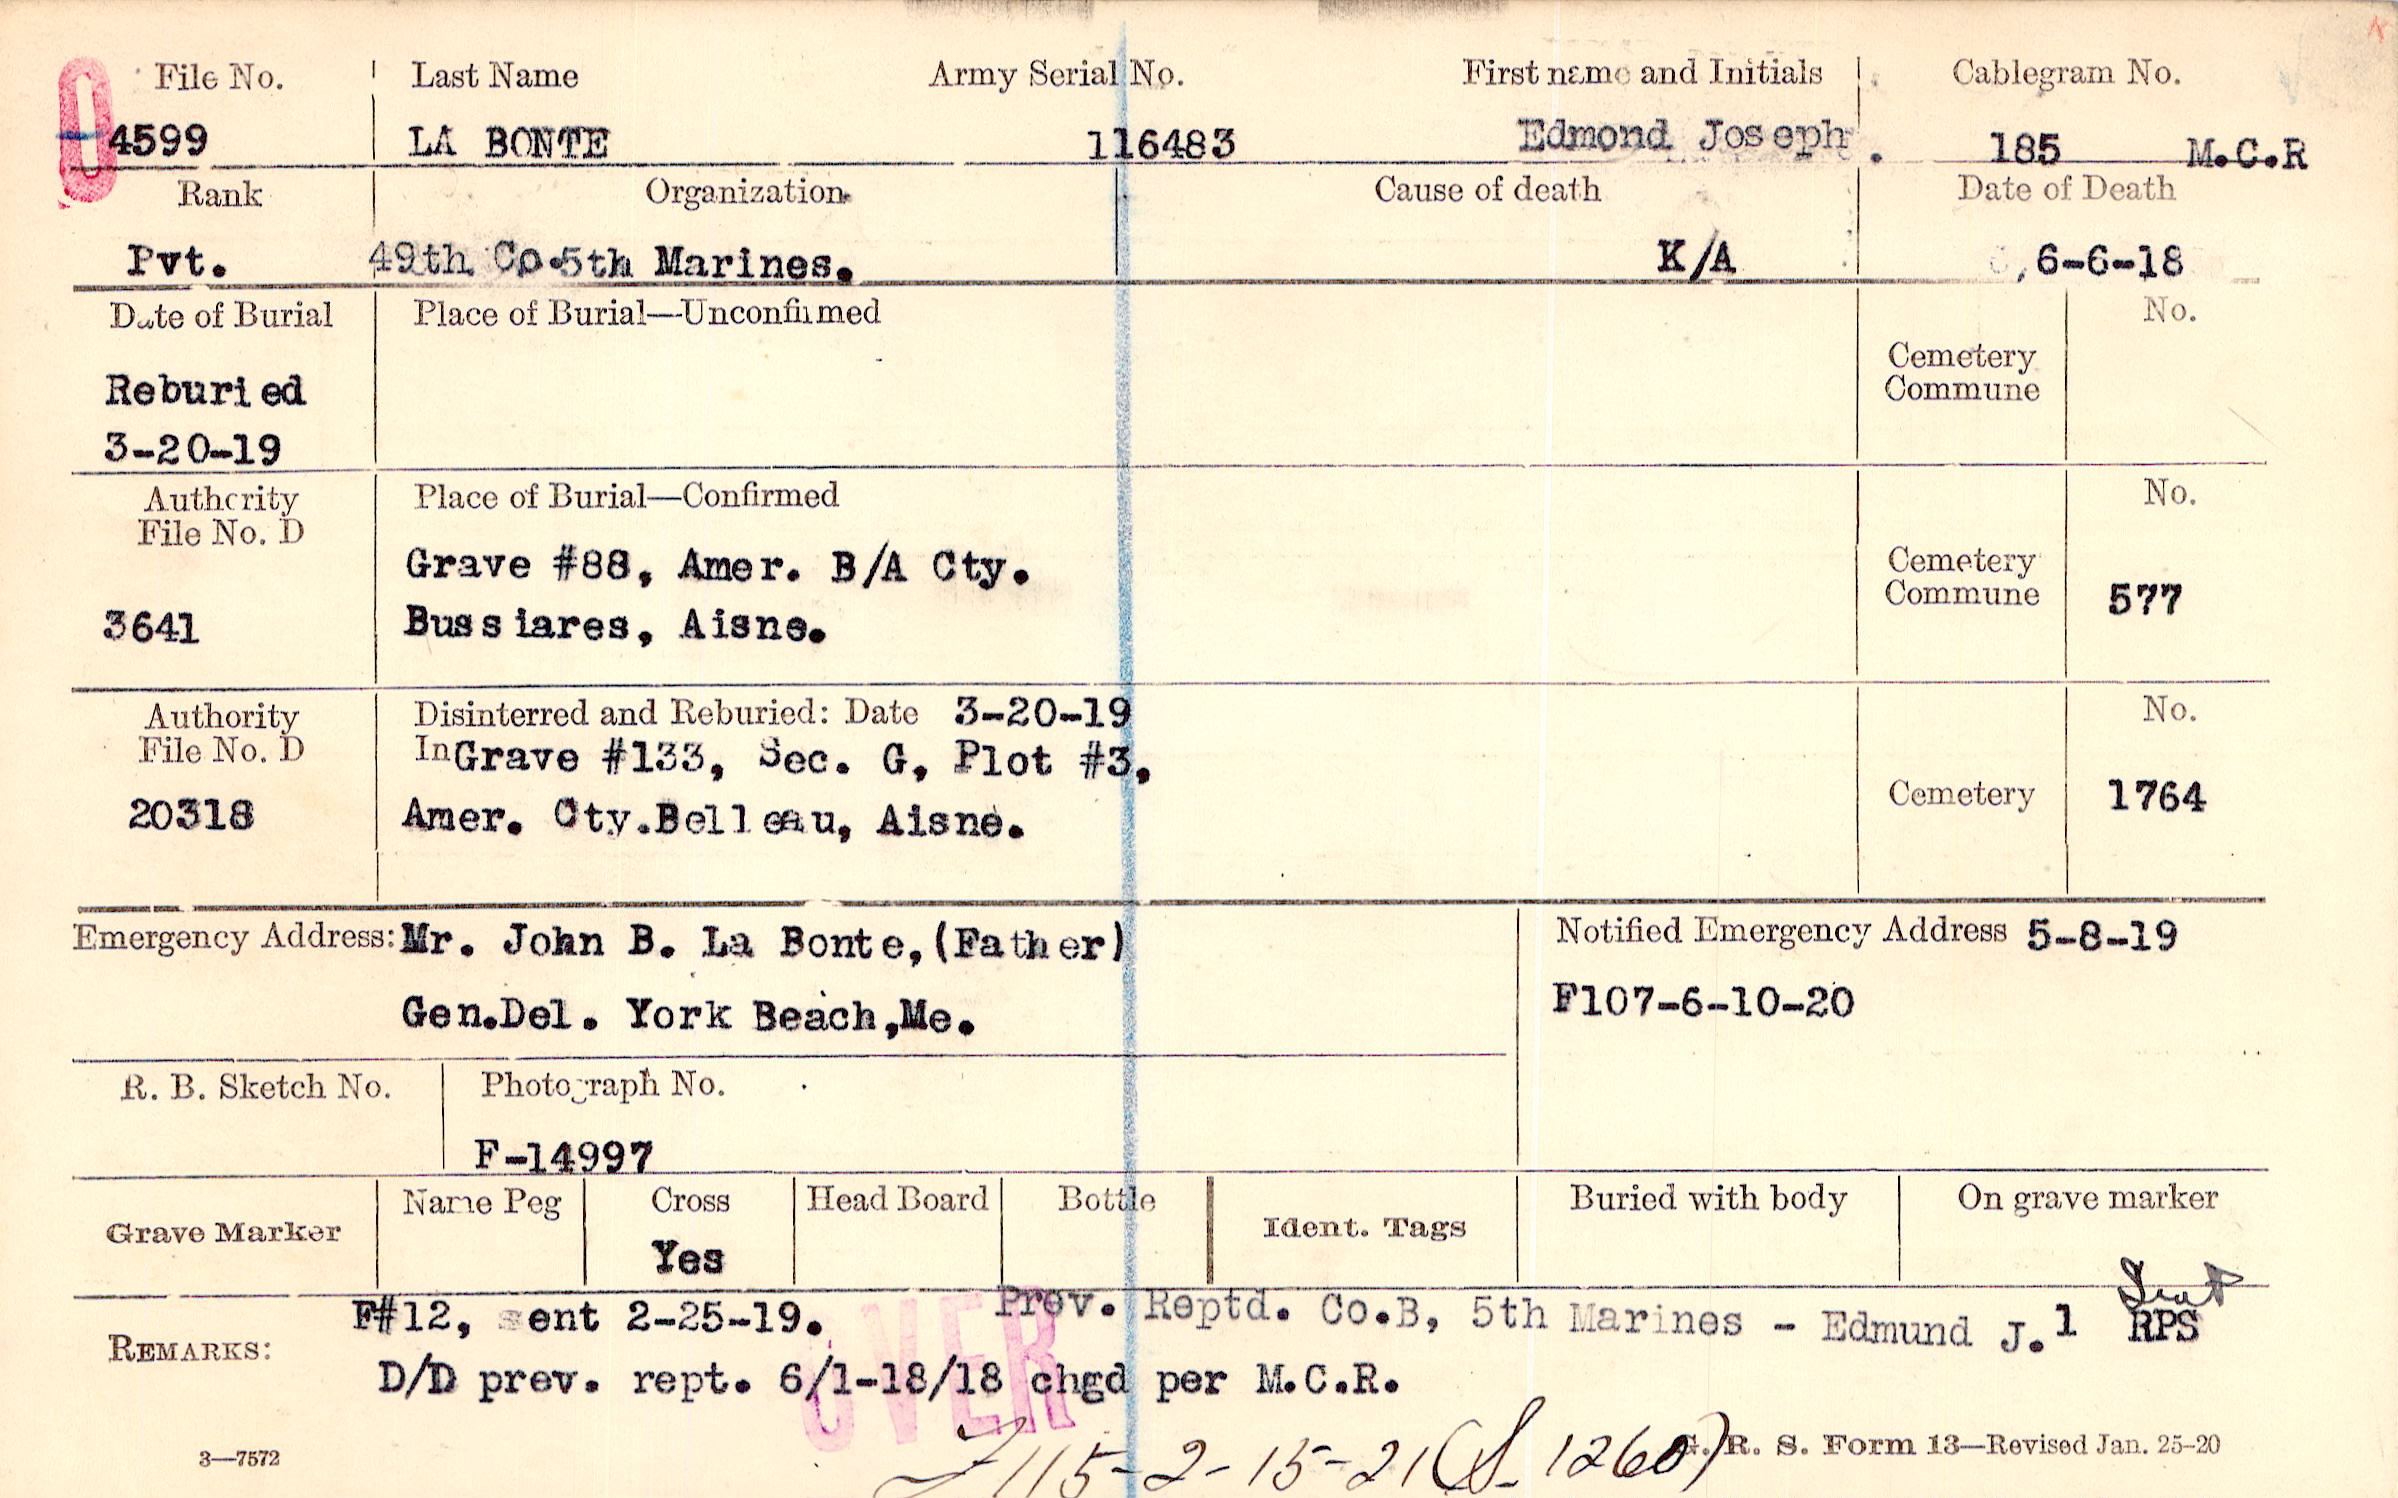 File No. Last Name Army Serial No. First name and Initials Cablegram No.
4599 LA BONTE 116483 Edmond Joseph. 185 M.C.R
Rank Organization Cause of death Date of Death
Pvt. 49th Co. 5th Marines. K/A 6-6-18
Date of Burial Place of Burial—Unconfirmed No.
Cemetery
Commune
Reburied
3-20-19
Authority Place of Burial—Confirmed No.
File No. D
Grave #88, Amer. B/A Cty. Cemetery
Commune 577
3641 Bussiares, Aisne.
Authority Disinterred and Reburied: Date 3-20-19 No.
File No. D In Grave #133, Sec. G, Plot #3,
Cemetery 1764
20318 Amer. Cty. Belleau, Aisne.
Emergency Address: Mr. John B. La Bonte, (Father) Notified Emergency Address 5-8-19
Gen. Del. York Beach, Me. F107-6-10-20
R. B. Sketch No. Photograph No.
F-14997
Grave Marker Name Peg Cross Head Board Bottle Ident. Tags Buried with body On grave marker
Yes
Sent
F#12, sent 2-25-19. Prev. Reptd. Co.B, 5th Marines - Edmund J. 1 RPS
REMARKS:
D/D prev. rept. 6/1-18/18 chgd per M.C.R.
OVER
3—7572 G. R. S. Form 13—Revised Jan. 25-20
F115-2-15-21 (S. 1260)